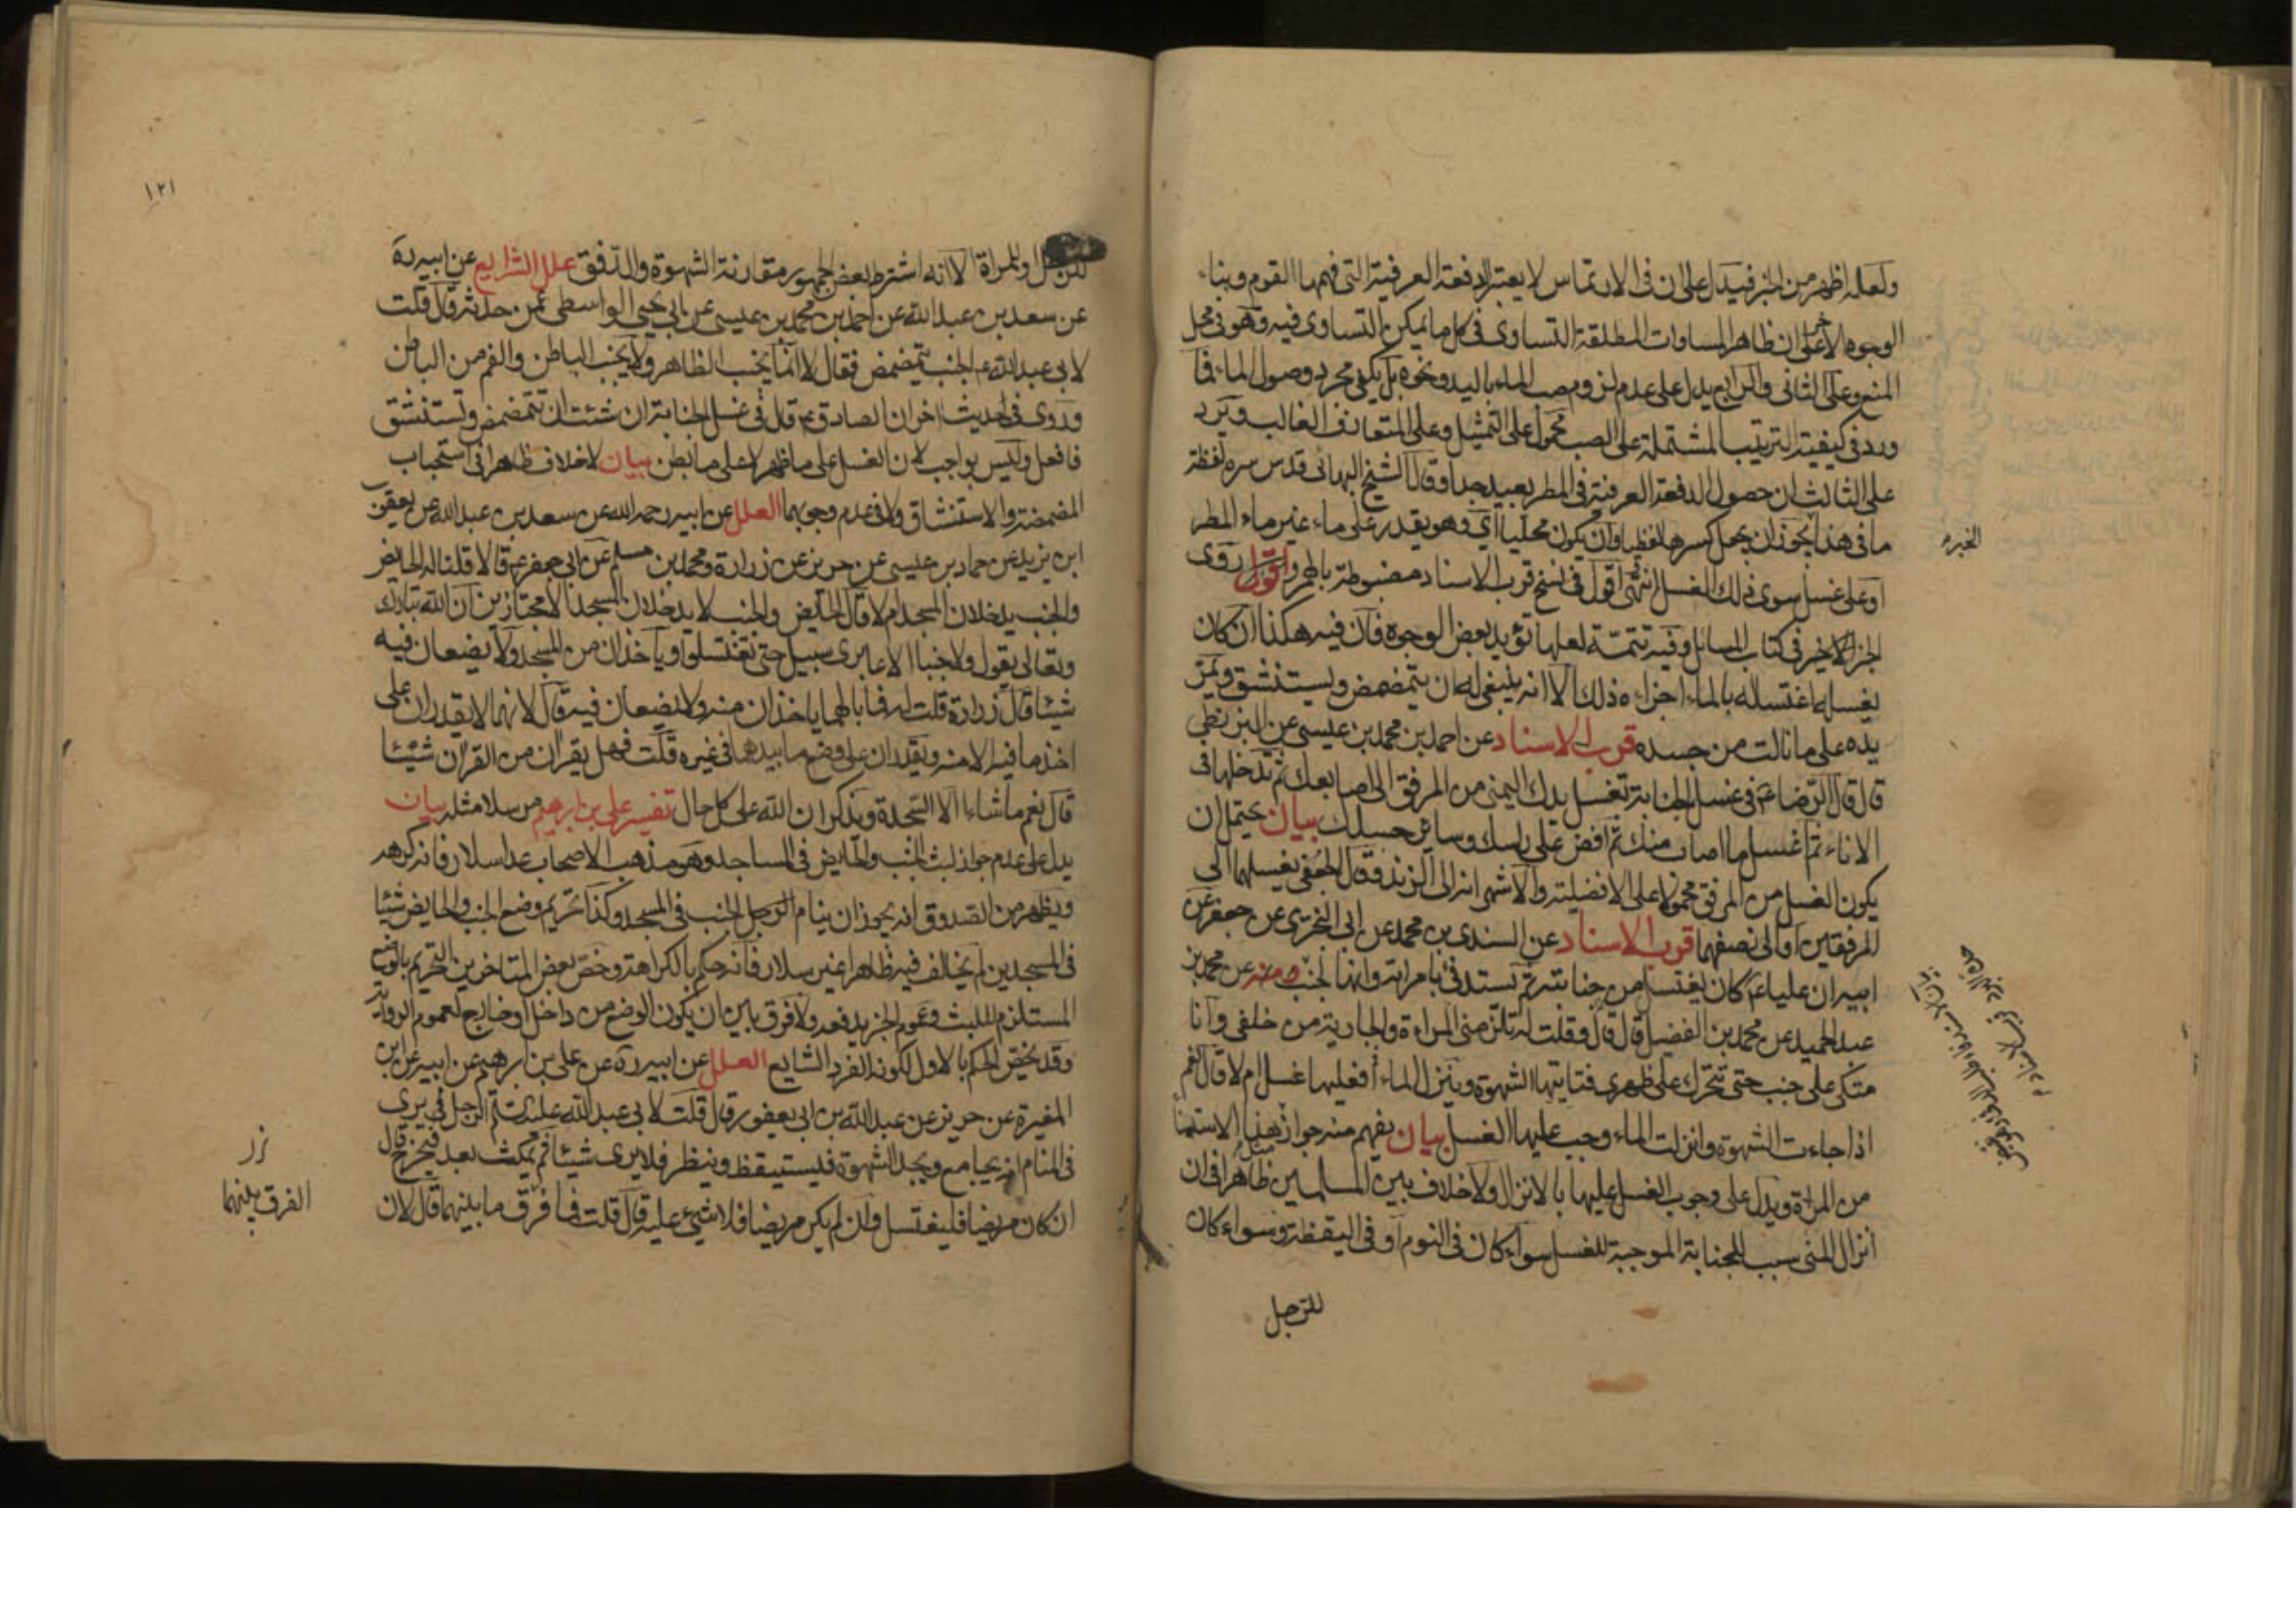 ولعله اظهر من الخبر فيدل على ان في الارتماس لا يعتبر الدفعة العرفية التي فهمها القوم وبناء
الوجوه الاخر على ان ظاهر المساوات المطلقة التساوى فى كل ما يمكن التساوى فيه وهو فى محل
المنع وعلى الثانى والرابع يدل على عدم لزوم صب الماء باليد ونحوه بل يكفى مجرد وصول الماء فما
ورد فى كيفية الترتيب المشتملة على الصب محمول على التمثيل وعلى المتعارف الغالب ويرد
على الثالث ان حصول الدفعة العرفية فى المطر بعيد جدا وقال الشيخ البهائى قدس سره لفظة
ما فى هذا يجوز ان يجعل كسرها لفظيا وان يكون محليا اى وهو يقدر على ماء غير ماء المطر
او على غسل سوى ذلك الغسل انتهى اقول فى نسخ قرب الاسناد مضبوطة بالهمز واقول روى
الخبر الاخير فى كتاب المسائل وفيه تتمة لعلها تؤيد بعض الوجوه فان فيه هكذا ان كان
يغسله اغتساله بالماء اجزاءه ذلك الا انه ينبغى له ان يتمضمض ويستنشق ويمر
يده على ما نالت من جسده قرب الاسناد عن احمد بن محمد بن عيسى عن البزنطى
قال قال الرضا ع فى غسل الجنابة تغسل يدك اليمنى من المرفق الى اصابعك ثم تدخلها فى
الاناء ثم اغسل ما اصاب منك ثم افض على راسك وسائر جسدك بيان يحتمل ان
يكون الغسل من المرفق محمولا على الافضلية والاشهر انه الى الزند وقال الجعفى يغسلهما الى
المرفقين او الى نصفهما قرب الاسناد عن السندى بن محمد عن ابى البخترى عن جعفر عن
ابيه ان عليا ع كان يغتسل من جنابته ثم يستدفئ بامراته وانها لجنب ومنه عن محمد بن
عبد الحميد عن محمد بن الفضيل قال قال وقلت له تلزمنى المراءة والجارية من خلفى وانا
متكى على جنب حتى تتحرك على ظهرى فتاتيها الشهوة وينزل الماء افعليها غسل ام لا قال نعم
اذا جاءت الشهوة وانزلت الماء وجب عليها الغسل بيان يفهم منه جواز مثل هذا الاستمناء
من المراة ويدل على وجوب الغسل عليها بالانزال ولا خلاف بين المسلمين ظاهرا فى ان
انزال المنى سبب للجنابة الموجبة للغسل سواء كان فى النوم او فى اليقظة وسواء كان
للرجل
١٢١
للرجل او للمراة الا انه اشترط بعض الجمهور مقارنة الشهوة والدفق علل الشرايع عن ابيه ره
عن سعد بن عبد الله عن احمد بن محمد بن عيسى عن ابى يحيى الواسطى عمن حدثه قال قلت
لابى عبد الله ع الجنب يتمضمض فقال لا انما يجنب الظاهر ولا يجنب الباطن والفم من الباطن
وروى فى حديث اخر ان الصادق ع قال فى غسل الجنابة ان شئت ان تتمضمض وتستنشق
فافعل وليس بواجب لان الغسل على ما ظهر لا على ما بطن بيان لا خلاف ظاهرا فى استحباب
المضمضة والاستنشاق ولا فى عدم وجوبهما العلل عن ابيه رحمه الله عن سعد بن عبد الله عن يعقوب
ابن يزيد عن حماد بن عيسى عن حريز عن زرارة ومحمد بن مسلم عن ابى جعفر ع قالا قلنا له الحايض
والجنب يدخلان المسجد ام لا قال الحايض والجنب لا يدخلان المسجد الا مجتازين ان الله تبارك
وتعالى يقول ولا جنبا الا عابرى سبيل حتى تغتسلوا وياخذان من المسجد ولا يضعان فيه
شيئا قال زرارة قلت له فما بالهما ياخذان منه ولا يضعان فيه قال لانهما لا يقدران على
اخذ ما فيه الا منه ويقدران على وضع ما بيدهما فى غيره قلت فهل يقران من القران شيئا
قال نعم ما شاءا الا السجدة ويذكران الله على كل حال تفسير على بن ابرهيم مرسلا مثله بيان
يدل على عدم جواز لبث الجنب والحايض فى المساجد وهو مذهب الاصحاب عدا سلار فانه كرهه
ويظهر من الصدوق انه يجوز ان ينام الرجل الجنب فى المسجد وكذا تحريم وضع الجنب والحايض شيئا
فى المسجدين لم يخالف فيه ظاهرا غير سلار فانه حكم بالكراهة وخص بعض المتاخرين التحريم بالوضع
المستلزم للبث وعموم الخبر يدفعه ولا فرق بين ان يكون الوضع من داخل او خارج لعموم الرواية
وقد يخص الحكم بالاول لكونه الفرد الشايع العلل عن ابيه ره عن على بن ابرهيم عن ابيه عن ابن
المغيرة عن حريز عن عبد الله بن ابى يعفور قال قلت لابى عبد الله عليه السلام الرجل يرى
فى المنام انه يجامع ويجد الشهوة فيستيقظ وينظر فلا يرى شيئا ثم يمكث بعد فيخرج قال
ان كان مريضا فليغتسل وان لم يكن مريضا فلا شىء عليه قال قلت فما فرق ما بينهما قال لان
الفرق بينهما